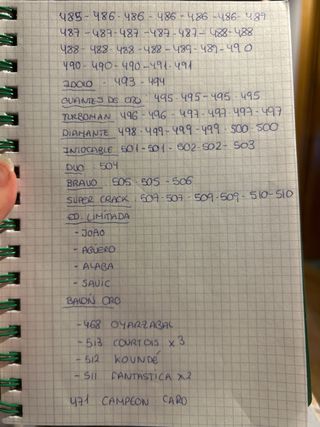 485-486-486-486-486-486-487
487-487-487-487-487-488-488
488-488-488-488-489-489-490
490-490-490-491-491
IDOLO: 493-494
GUANTES DE ORO: 495-495-495-495
TURBOMAN: 496-496-497-497-497-497
DIAMANTE: 498-499-499-499-500-500
INTOCABLE: 501-501-502-502-503
DUO: 504
BRAVO: 505-505-506
SUPER CRACK: 507-507-509-509-510-510
ED. LIMITADA
- JOAO
- AGÜERO
- ALABA
- SAVIC
BALÓN ORO
- 468 OYARZABAL
- 513 COURTOIS x3
- 512 KOUNDÉ
- 511 FANTASTICA x2
471 CAMPEON CARD